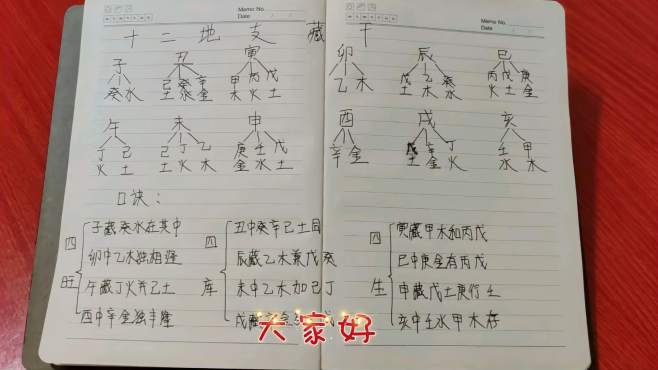 Memo No.
Date
Memo No.
Date
十二地支藏干
子 丑 寅 卯 辰 巳
癸水 己土 癸水 辛金 甲木 丙火 戊土 乙木 戊土 乙木 癸水 丙火 戊土 庚金
午 未 申 酉 戌 亥
丁火 己土 己土 丁火 乙木 庚金 壬水 戊土 辛金 戊土 辛金 丁火 壬水 甲木
口诀:
四旺
子藏癸水在其中
卯中乙木独相逢
午藏丁火并己土
酉中辛金独丰隆
四库
丑中癸辛己土同
辰藏乙木兼戊癸
未中乙木加己丁
戌藏
四生
寅藏甲木和丙戊
巳中庚金有丙戊
申藏戊土庚行壬
亥中壬水甲木存
大家好